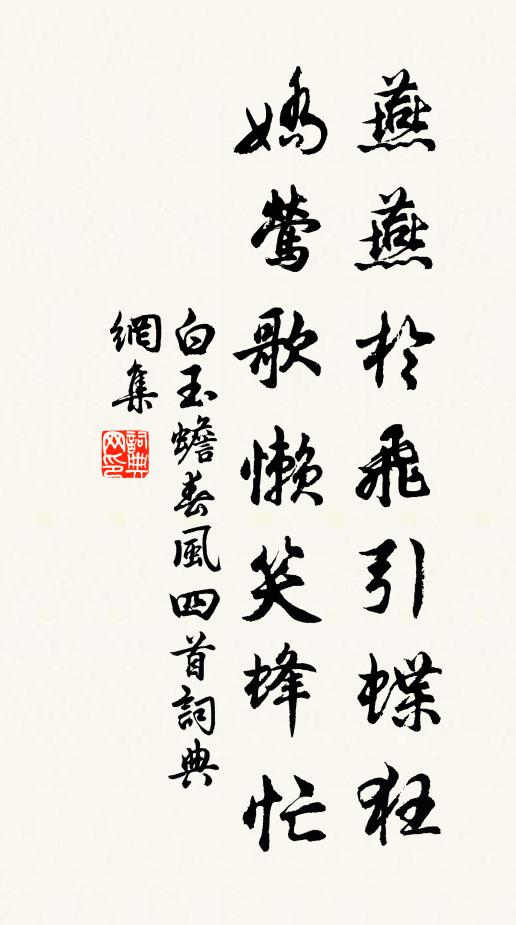 燕燕於飛引蝶狂
嬌鶯歌懶笑蜂忙
白玉蟾春風四首詞典
網集
詞典
网印